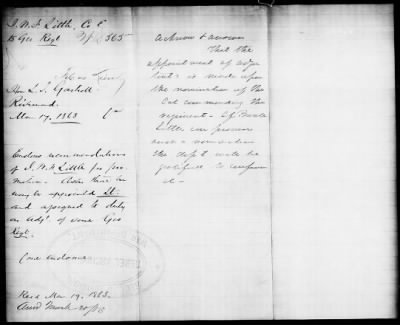 J. W. F. Little, Co. E
15 Geo Regt 565
Hon L. J. Gartrell
Richmond
Mar 17. 1863
Endorses recommendations
of J. W. F. Little for pro-
motion. Asks that he
may be appointed Lt.
and assigned to duty
as Adjt. of some Geo
Regt.
One endorse.
Recd Mar 19. 1863.
Ansd March 20/63
Acknow & answer
That the
appointment of adju
tants is made upon
the nomination of the
Col commanding the
regiment - If
Little can procure
such a nomination
the dept will be
gratified to